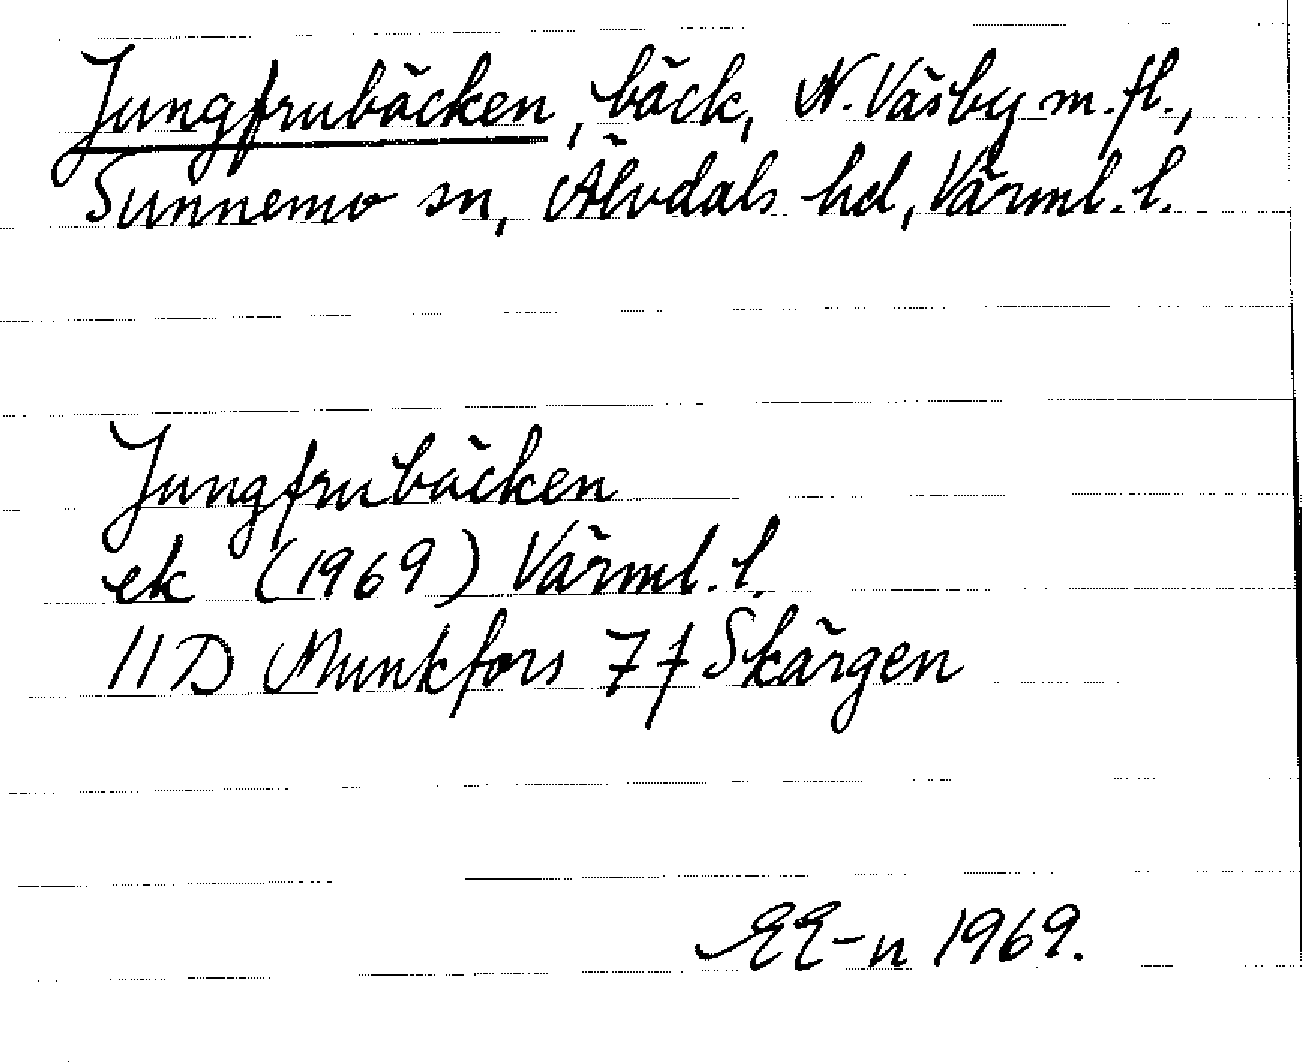 Jungfrubäcken, bäck, N. Väsby m. fl.,
Sunnemo sn, Älvdals hd, Värml. l.
Jungfrubäcken
ek (1969) Värml. l.
11D Munkfors 7 f Skärgen
EE-n 1969.